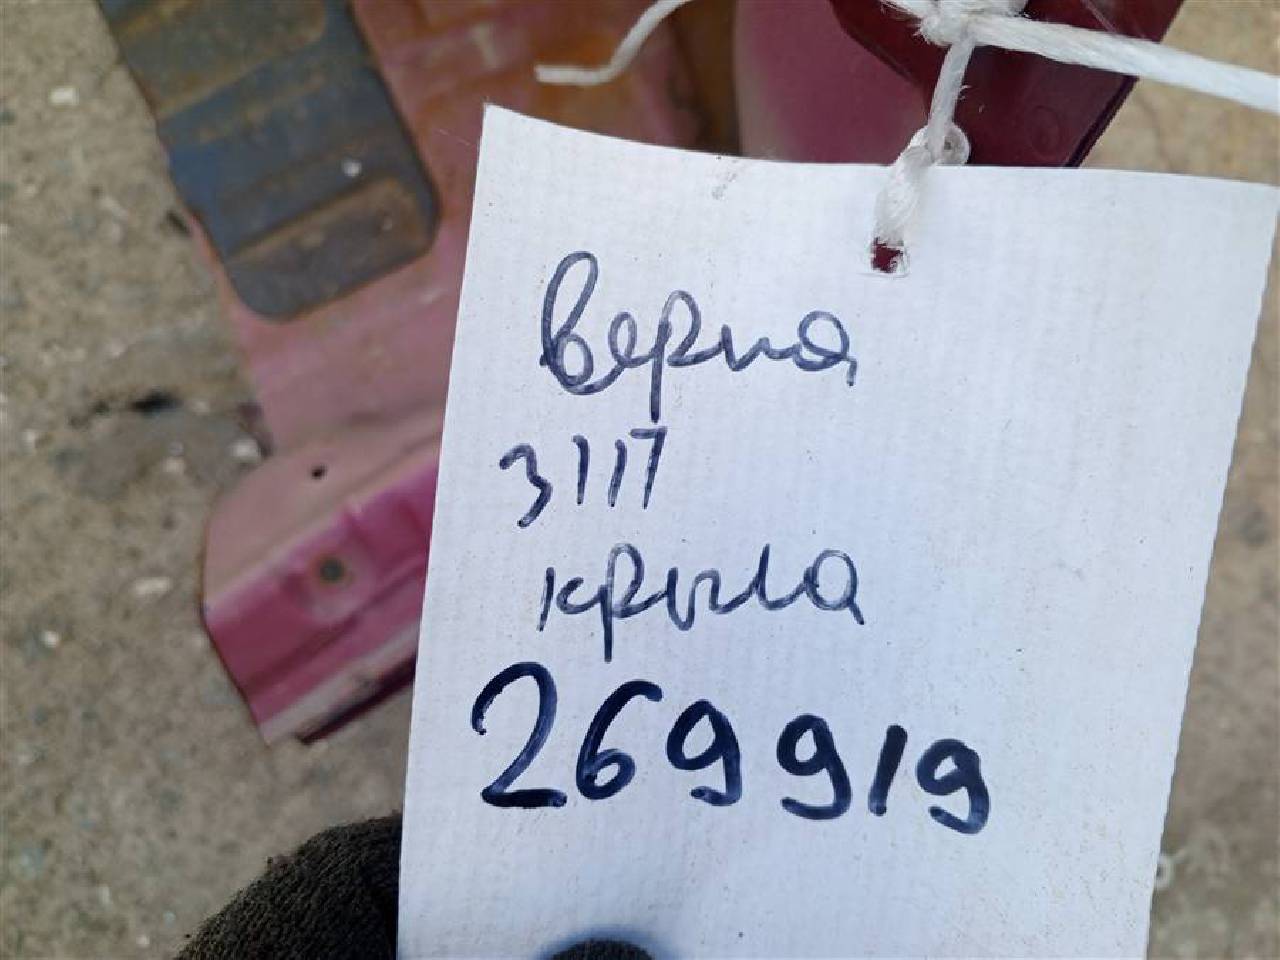 Верна
ЗПП
крыла
269919